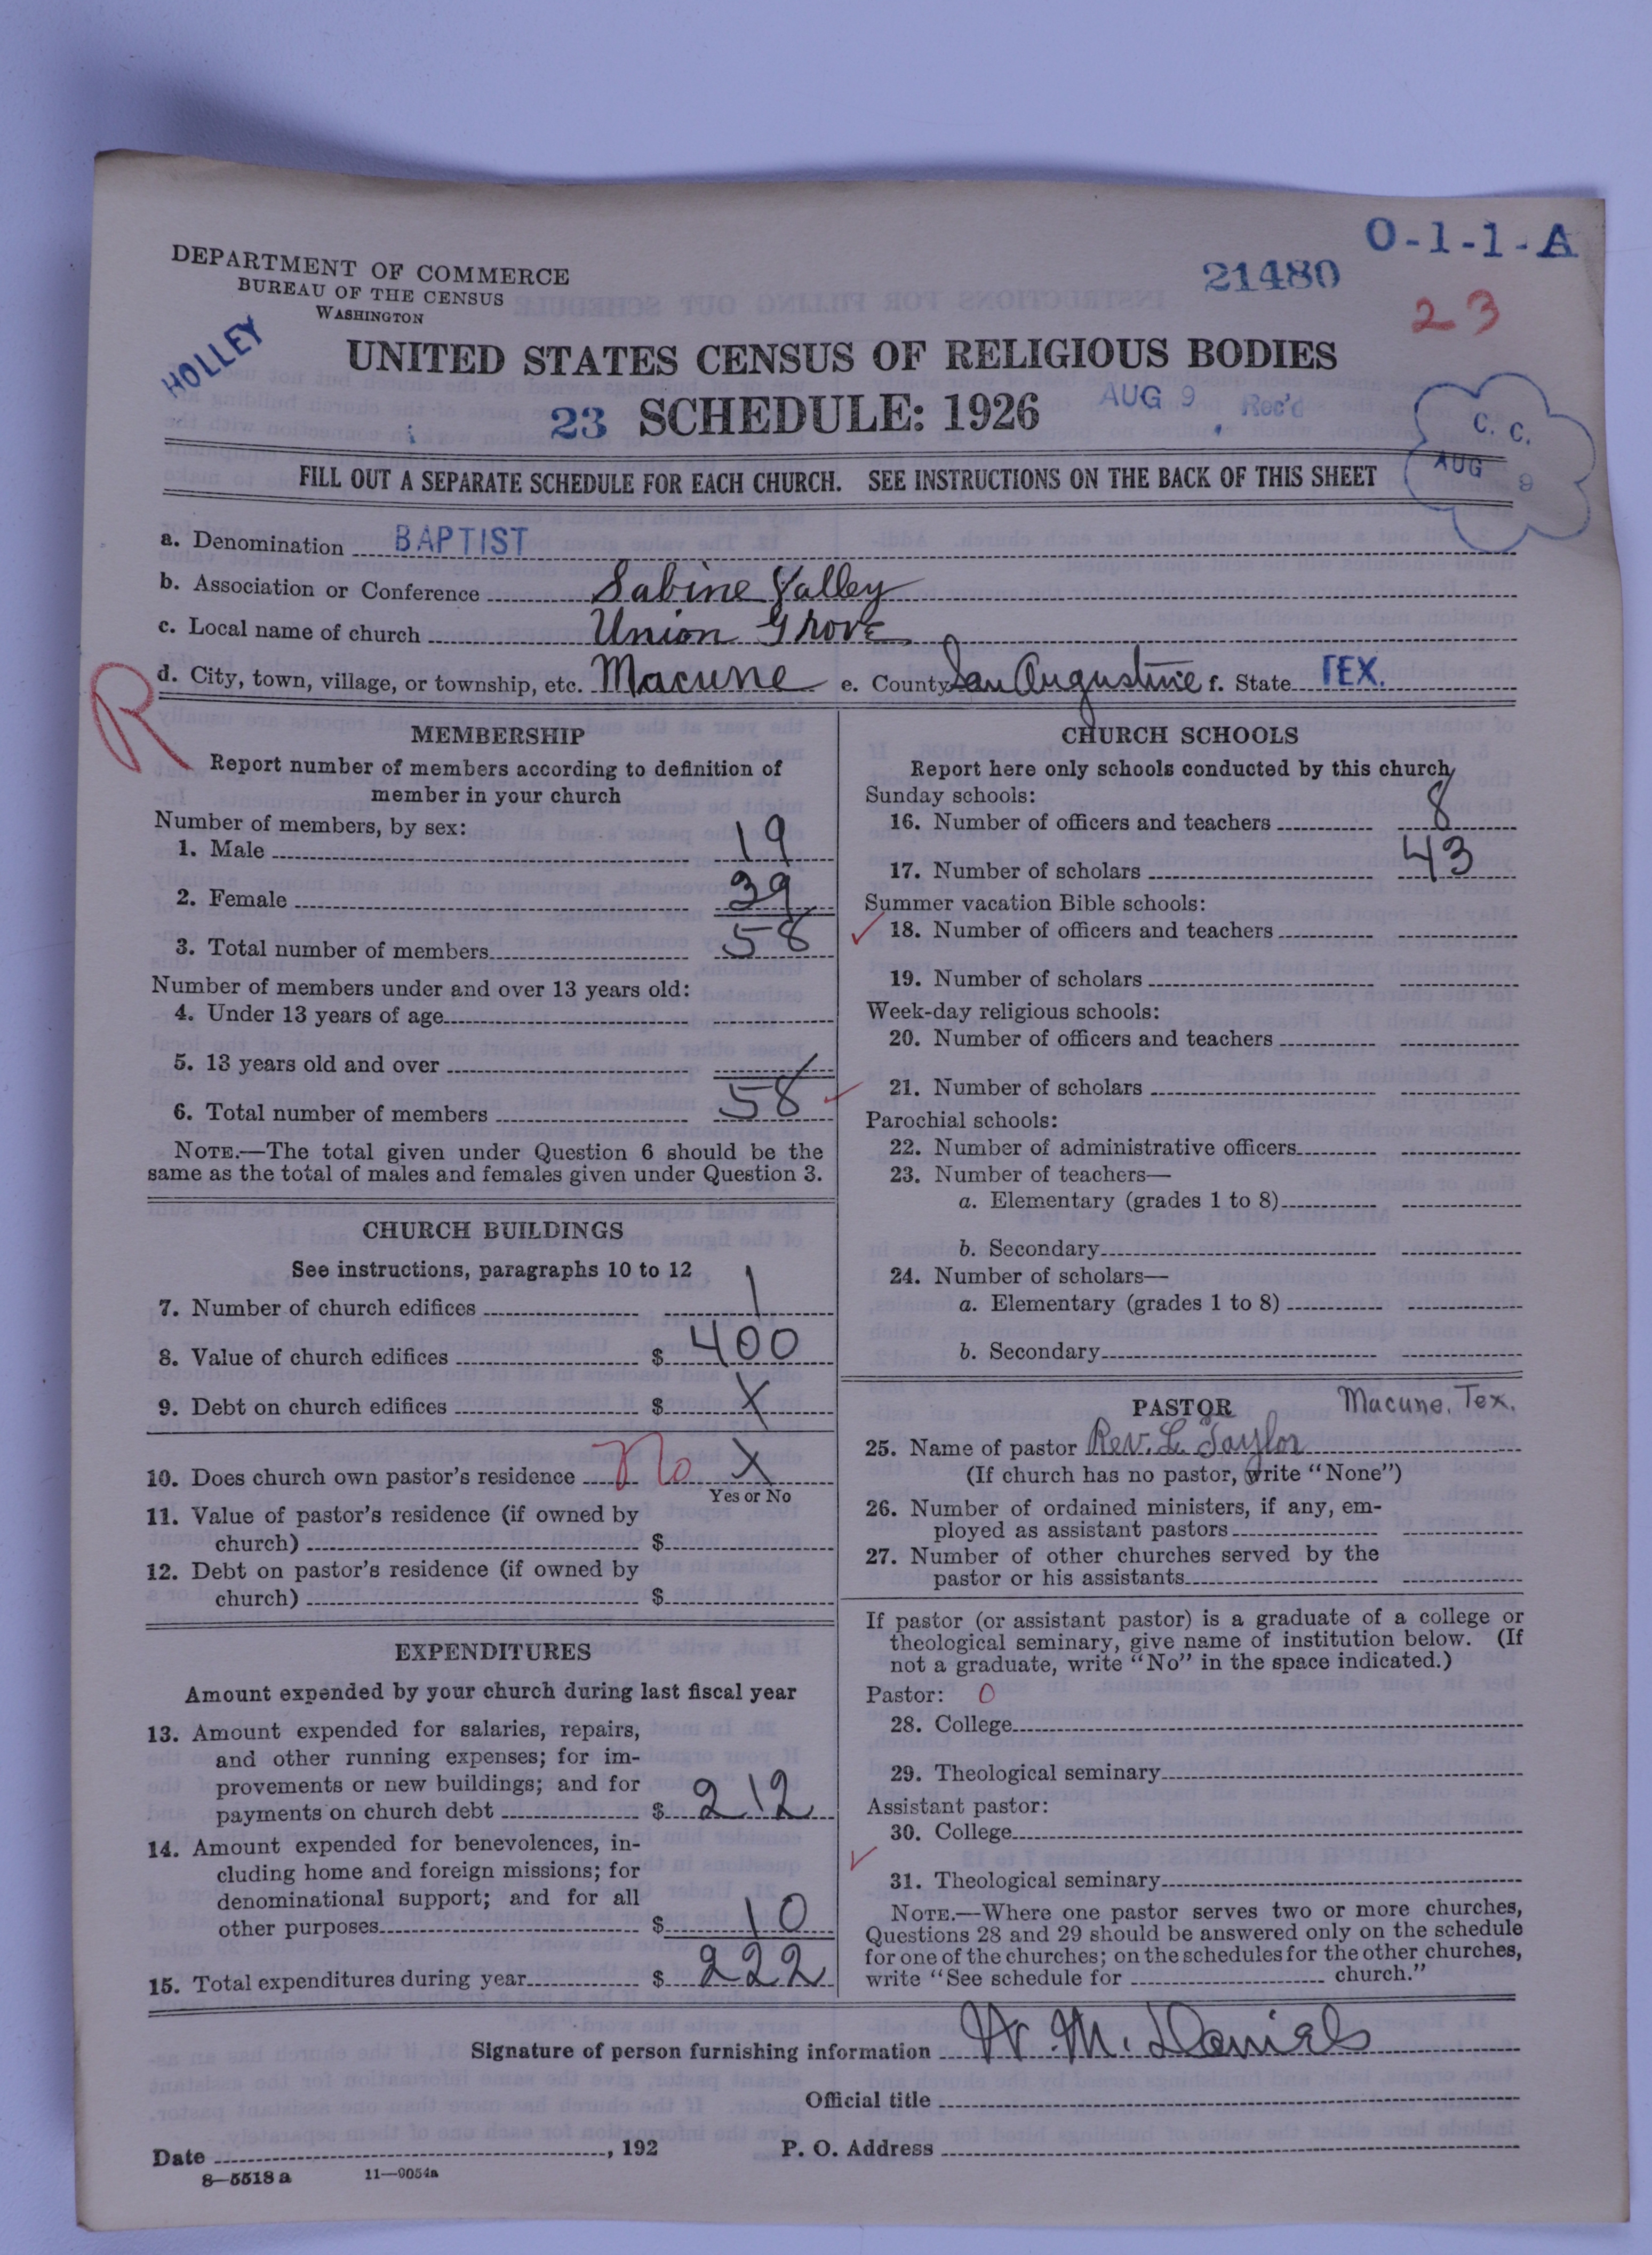 O-1-1-A
DEPARTMENT OF COMMERCE
BUREAU OF THE CENSUS
WASHINGTON
21480
23
HOLLEY
UNITED STATES CENSUS OF RELIGIOUS BODIES
23 SCHEDULE: 1926
AUG 9 Rec'd
C. C.
AUG 9
FILL OUT A SEPARATE SCHEDULE FOR EACH CHURCH. SEE INSTRUCTIONS ON THE BACK OF THIS SHEET
a. Denomination BAPTIST
b. Association or Conference Sabine Valley
c. Local name of church Union Grove
R
d. City, town, village, or township, etc. Macune e. County San Augustine f. State TEX.
MEMBERSHIP
Report number of members according to definition of
member in your church
Number of members, by sex:
1. Male 19
2. Female 39
3. Total number of members 58
Number of members under and over 13 years old:
4. Under 13 years of age
5. 13 years old and over
6. Total number of members 58
NOTE.—The total given under Question 6 should be the
same as the total of males and females given under Question 3.
CHURCH BUILDINGS
See instructions, paragraphs 10 to 12
7. Number of church edifices 1
8. Value of church edifices $ 400
9. Debt on church edifices $ X
10. Does church own pastor's residence no X
Yes or No
11. Value of pastor's residence (if owned by
church) $
12. Debt on pastor's residence (if owned by
church) $
EXPENDITURES
Amount expended by your church during last fiscal year
13. Amount expended for salaries, repairs,
and other running expenses; for im-
provements or new buildings; and for
payments on church debt $ 212
14. Amount expended for benevolences, in-
cluding home and foreign missions; for
denominational support; and for all
other purposes $ 10
15. Total expenditures during year $ 222
CHURCH SCHOOLS
Report here only schools conducted by this church
Sunday schools:
16. Number of officers and teachers 8
17. Number of scholars 43
Summer vacation Bible schools:
18. Number of officers and teachers
19. Number of scholars
Week-day religious schools:
20. Number of officers and teachers
21. Number of scholars
Parochial schools:
22. Number of administrative officers
23. Number of teachers—
a. Elementary (grades 1 to 8)
b. Secondary
24. Number of scholars—
a. Elementary (grades 1 to 8)
b. Secondary
PASTOR Macune, Tex.
25. Name of pastor Rev. L. Taylor
(If church has no pastor, write "None")
26. Number of ordained ministers, if any, em-
ployed as assistant pastors
27. Number of other churches served by the
pastor or his assistants
If pastor (or assistant pastor) is a graduate of a college or
theological seminary, give name of institution below. (If
not a graduate, write "No" in the space indicated.)
Pastor: 0
28. College
29. Theological seminary
Assistant pastor:
30. College
31. Theological seminary
NOTE.—Where one pastor serves two or more churches,
Questions 28 and 29 should be answered only on the schedule
for one of the churches; on the schedules for the other churches,
write "See schedule for church."
Signature of person furnishing information W. M. Daniels
Official title
Date , 192 P. O. Address
8—5518 a 11—9054a